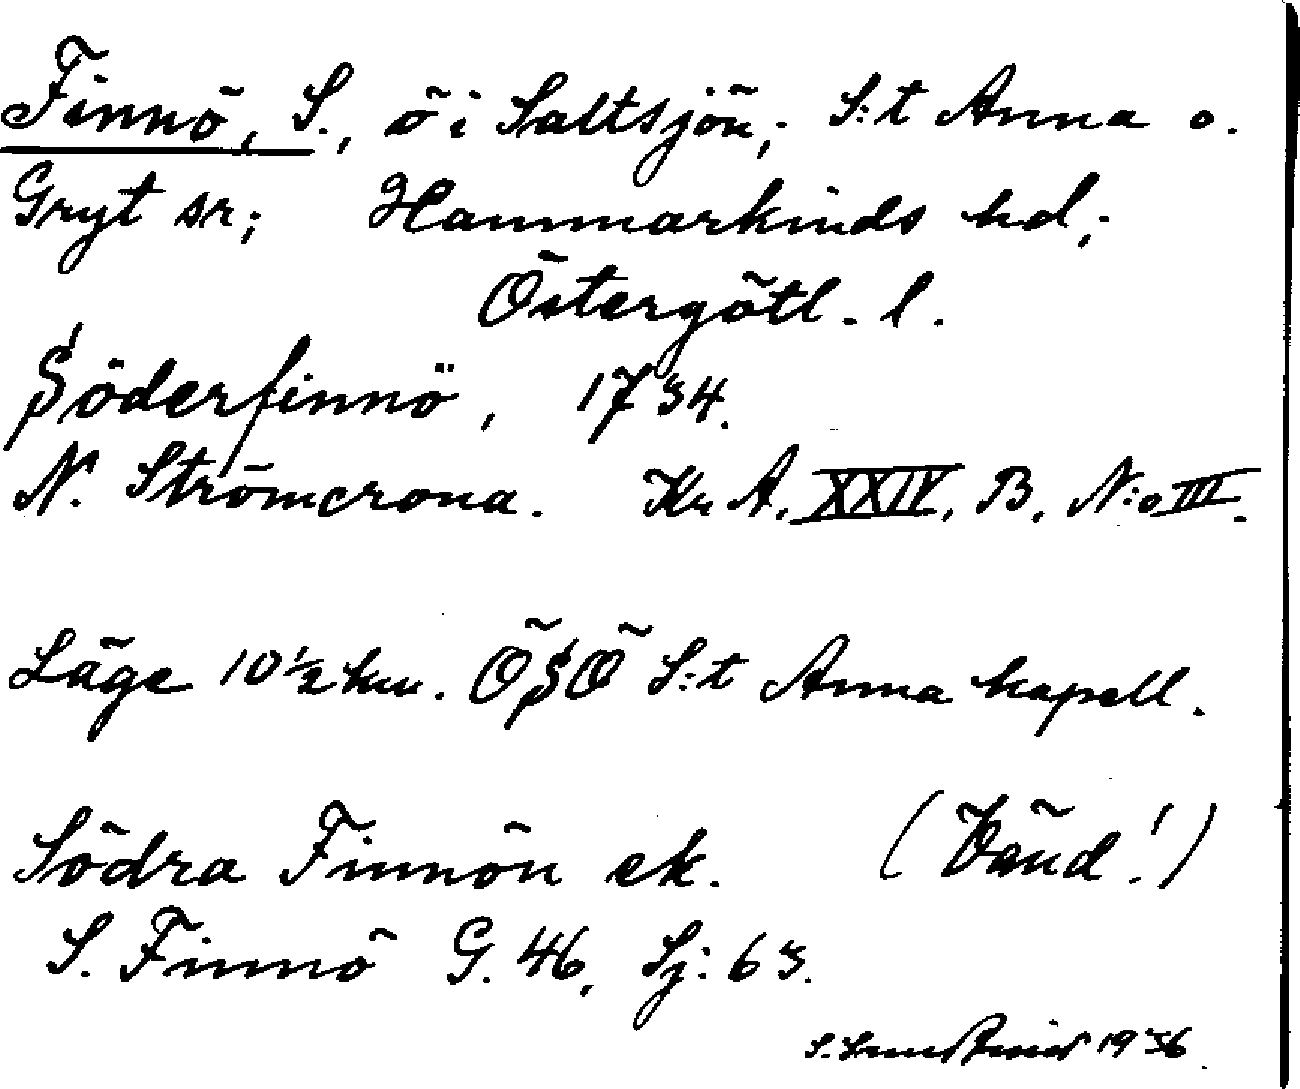 Finnö, S., ö i Saltsjön; S:t Anna o.
Gryt sr; Hammarkinds hd;
Östergötl. l.
Söderfinnö, 1734.
N. Strömcrona. Kr A. XXIV, B. N:o III.
Läge 10 1/2 km. ÖSÖ S:t Anna kapell.
Södra Finnön ek. (Vänd!)
S. Finnö G. 46, Sj: 63.
S. 1936